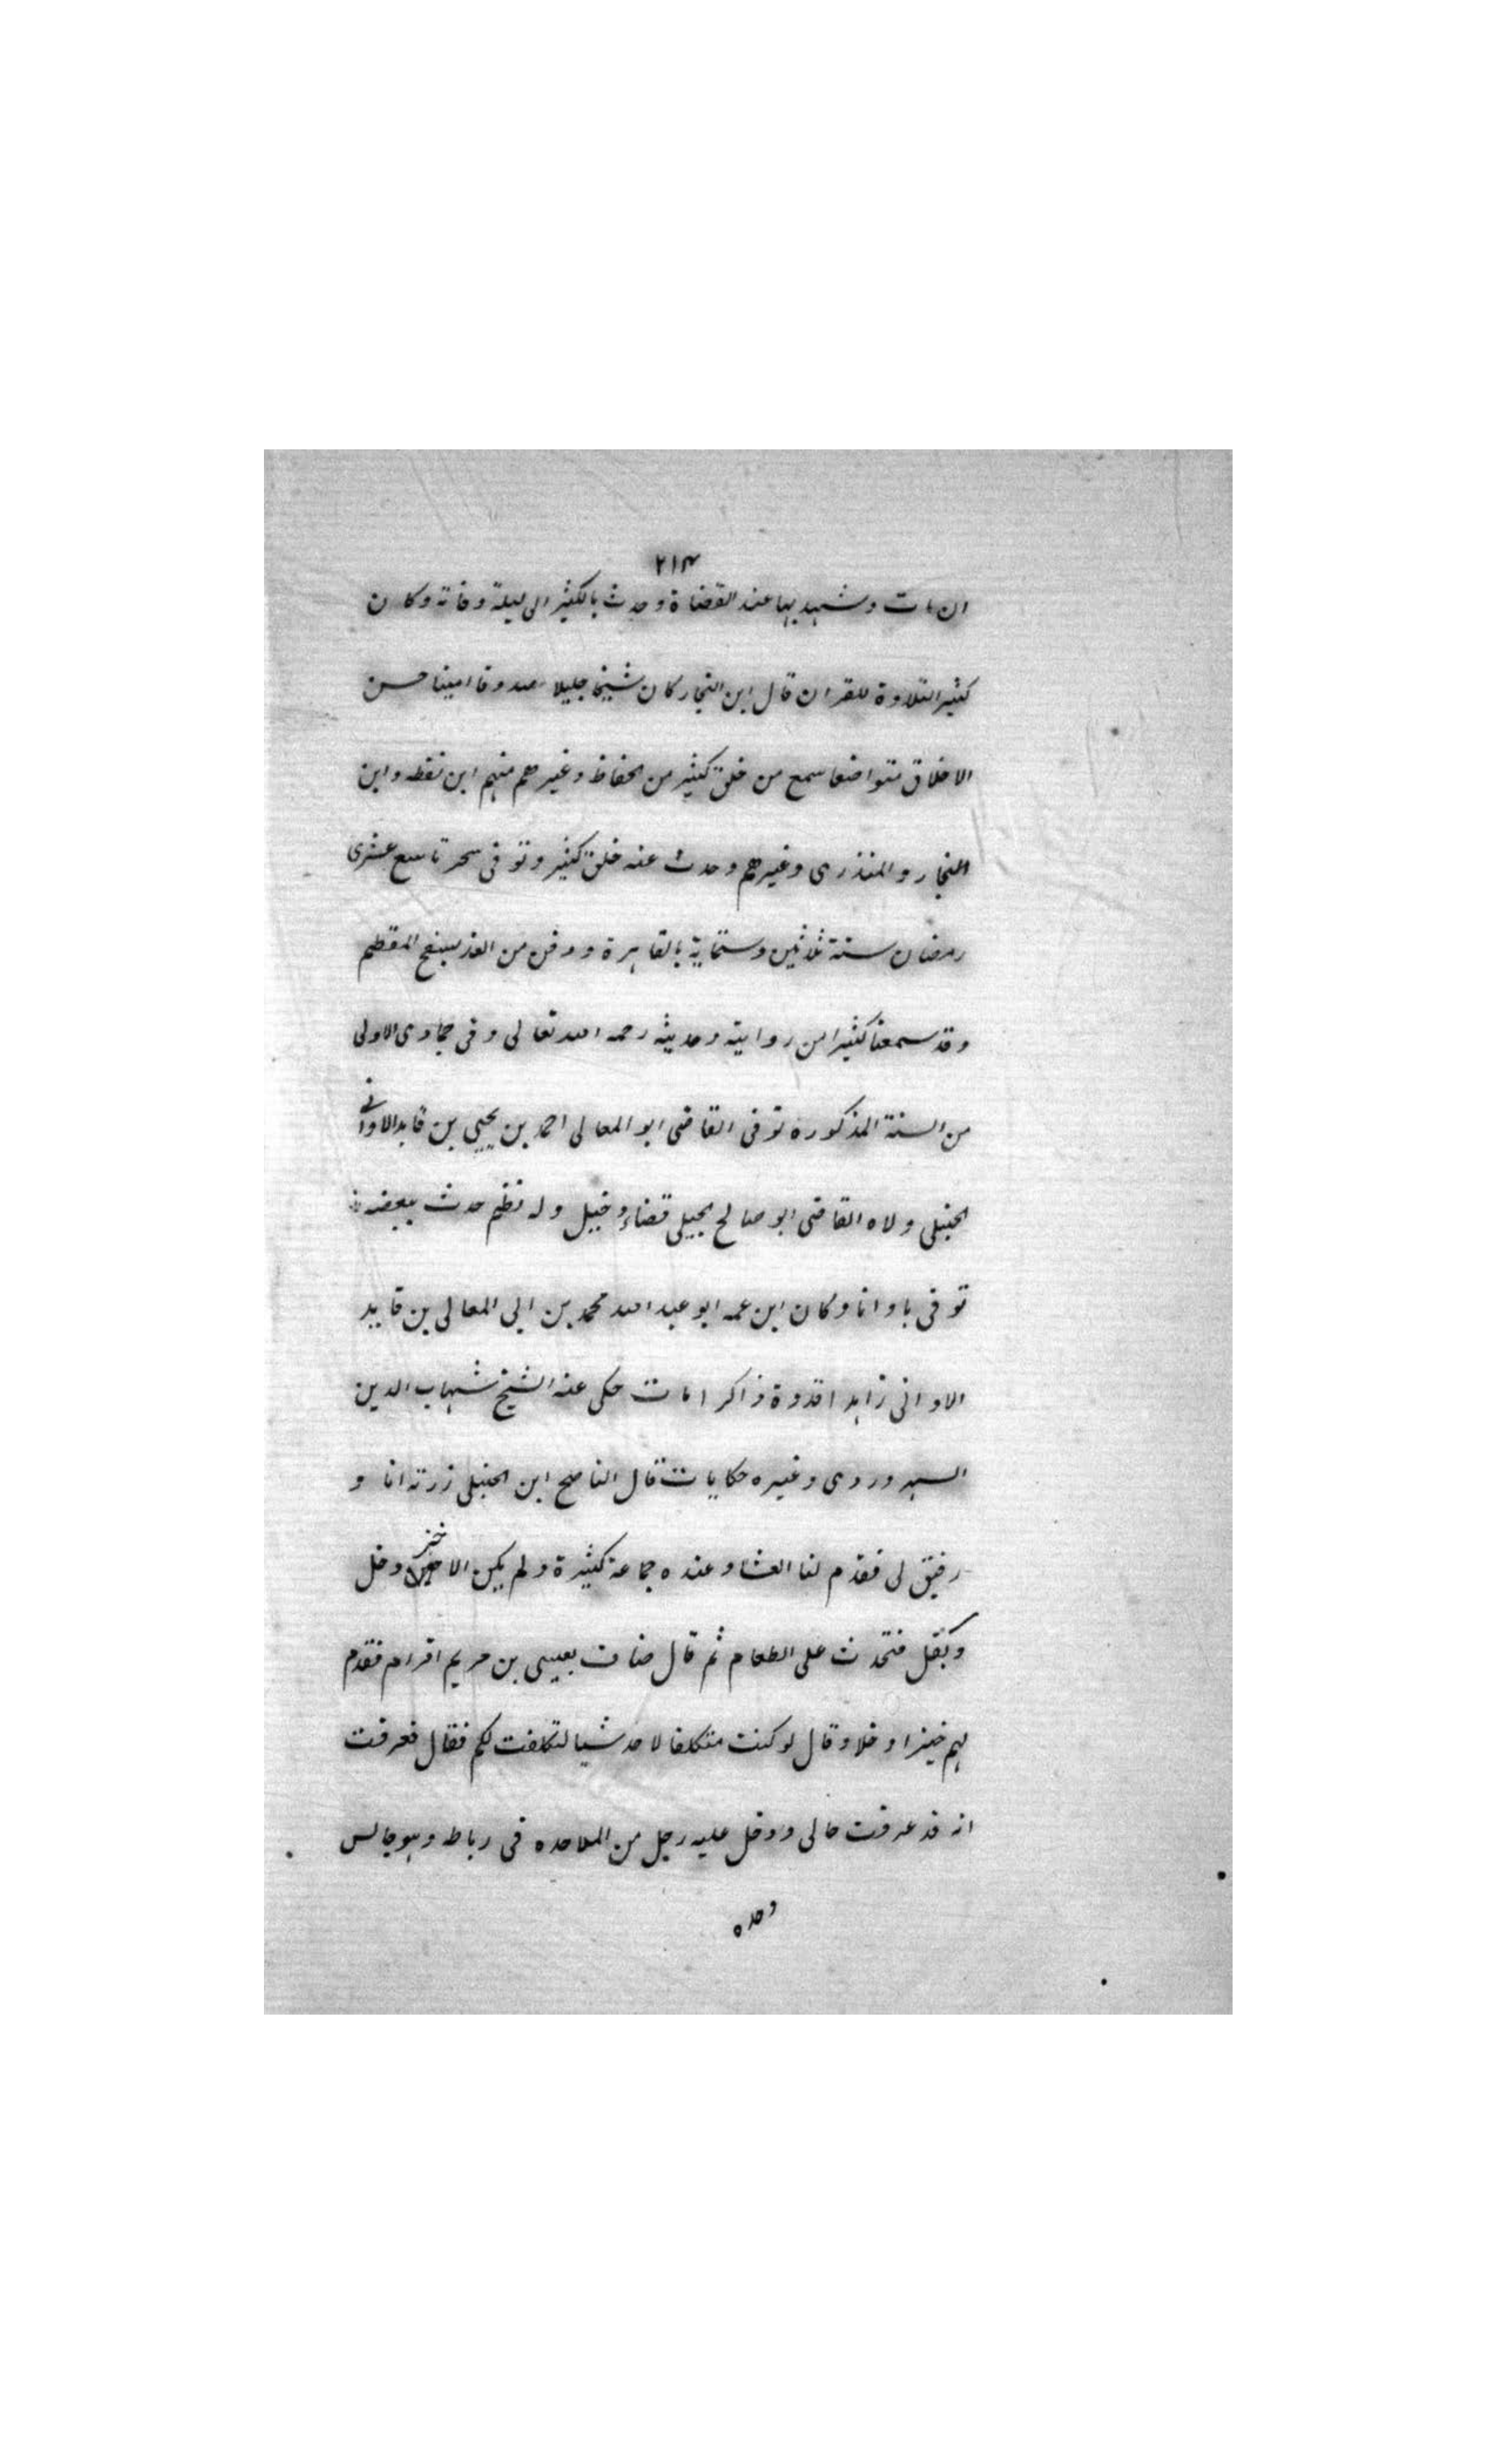 ٢١٣
ان مات وشهد بها عند القضاة وحدث بالكثير الى ليلة وفاته وكان
كثير التلاوة للقران قال ابن النجار كان شيخا جليلا صدوقا امينا حسن
الاخلاق متواضعا سمع من خلق كثير من الحفاظ وغيرهم منهم ابن نقطه وابن
النجار والمنذرى وغيرهم وحدث عنه خلق كثير وتوفى سحر تاسع عشرى
رمضان سنة ثلاثين وستماية بالقاهرة ودفن من الغد بسفح المقطم
وقد سمعنا كثيرا من روايته وحديثه رحمه الله تعالى وفى جمادى الاولى
من السنة المذكورة توفى القاضى ابو المعالى احمد بن يحيى بن قايد الاوانى
الحنبلى ولاه القاضى ابو صالح الجيلى قضاء دجيل وله نظم حدث ببعضه
توفى باوانا وكان ابن عمه ابو عبد الله محمد بن ابى المعالى بن قايد
الاوانى زاهدا قدوة ذا كرامات حكى عنه الشيخ شهاب الدين
السهروردى وغيره حكايات قال الناصح ابن الحنبلى زرته انا و
رفيق لى فقدم لنا العشا وعنده جماعة كثيرة ولم يكن الا خبز وخل
وبقل فتحدث على الطعام ثم قال ضاف بعيسى بن مريم اقرام فقدم
لهم خبزا وخلا وقال لو كنت متكلفا لاحد شيا لتكلفت لكم فقال فعرفت
انه قد عرفت حالى ودخل عليه رجل من الملاحده فى رباطه وهو جالس
وحده